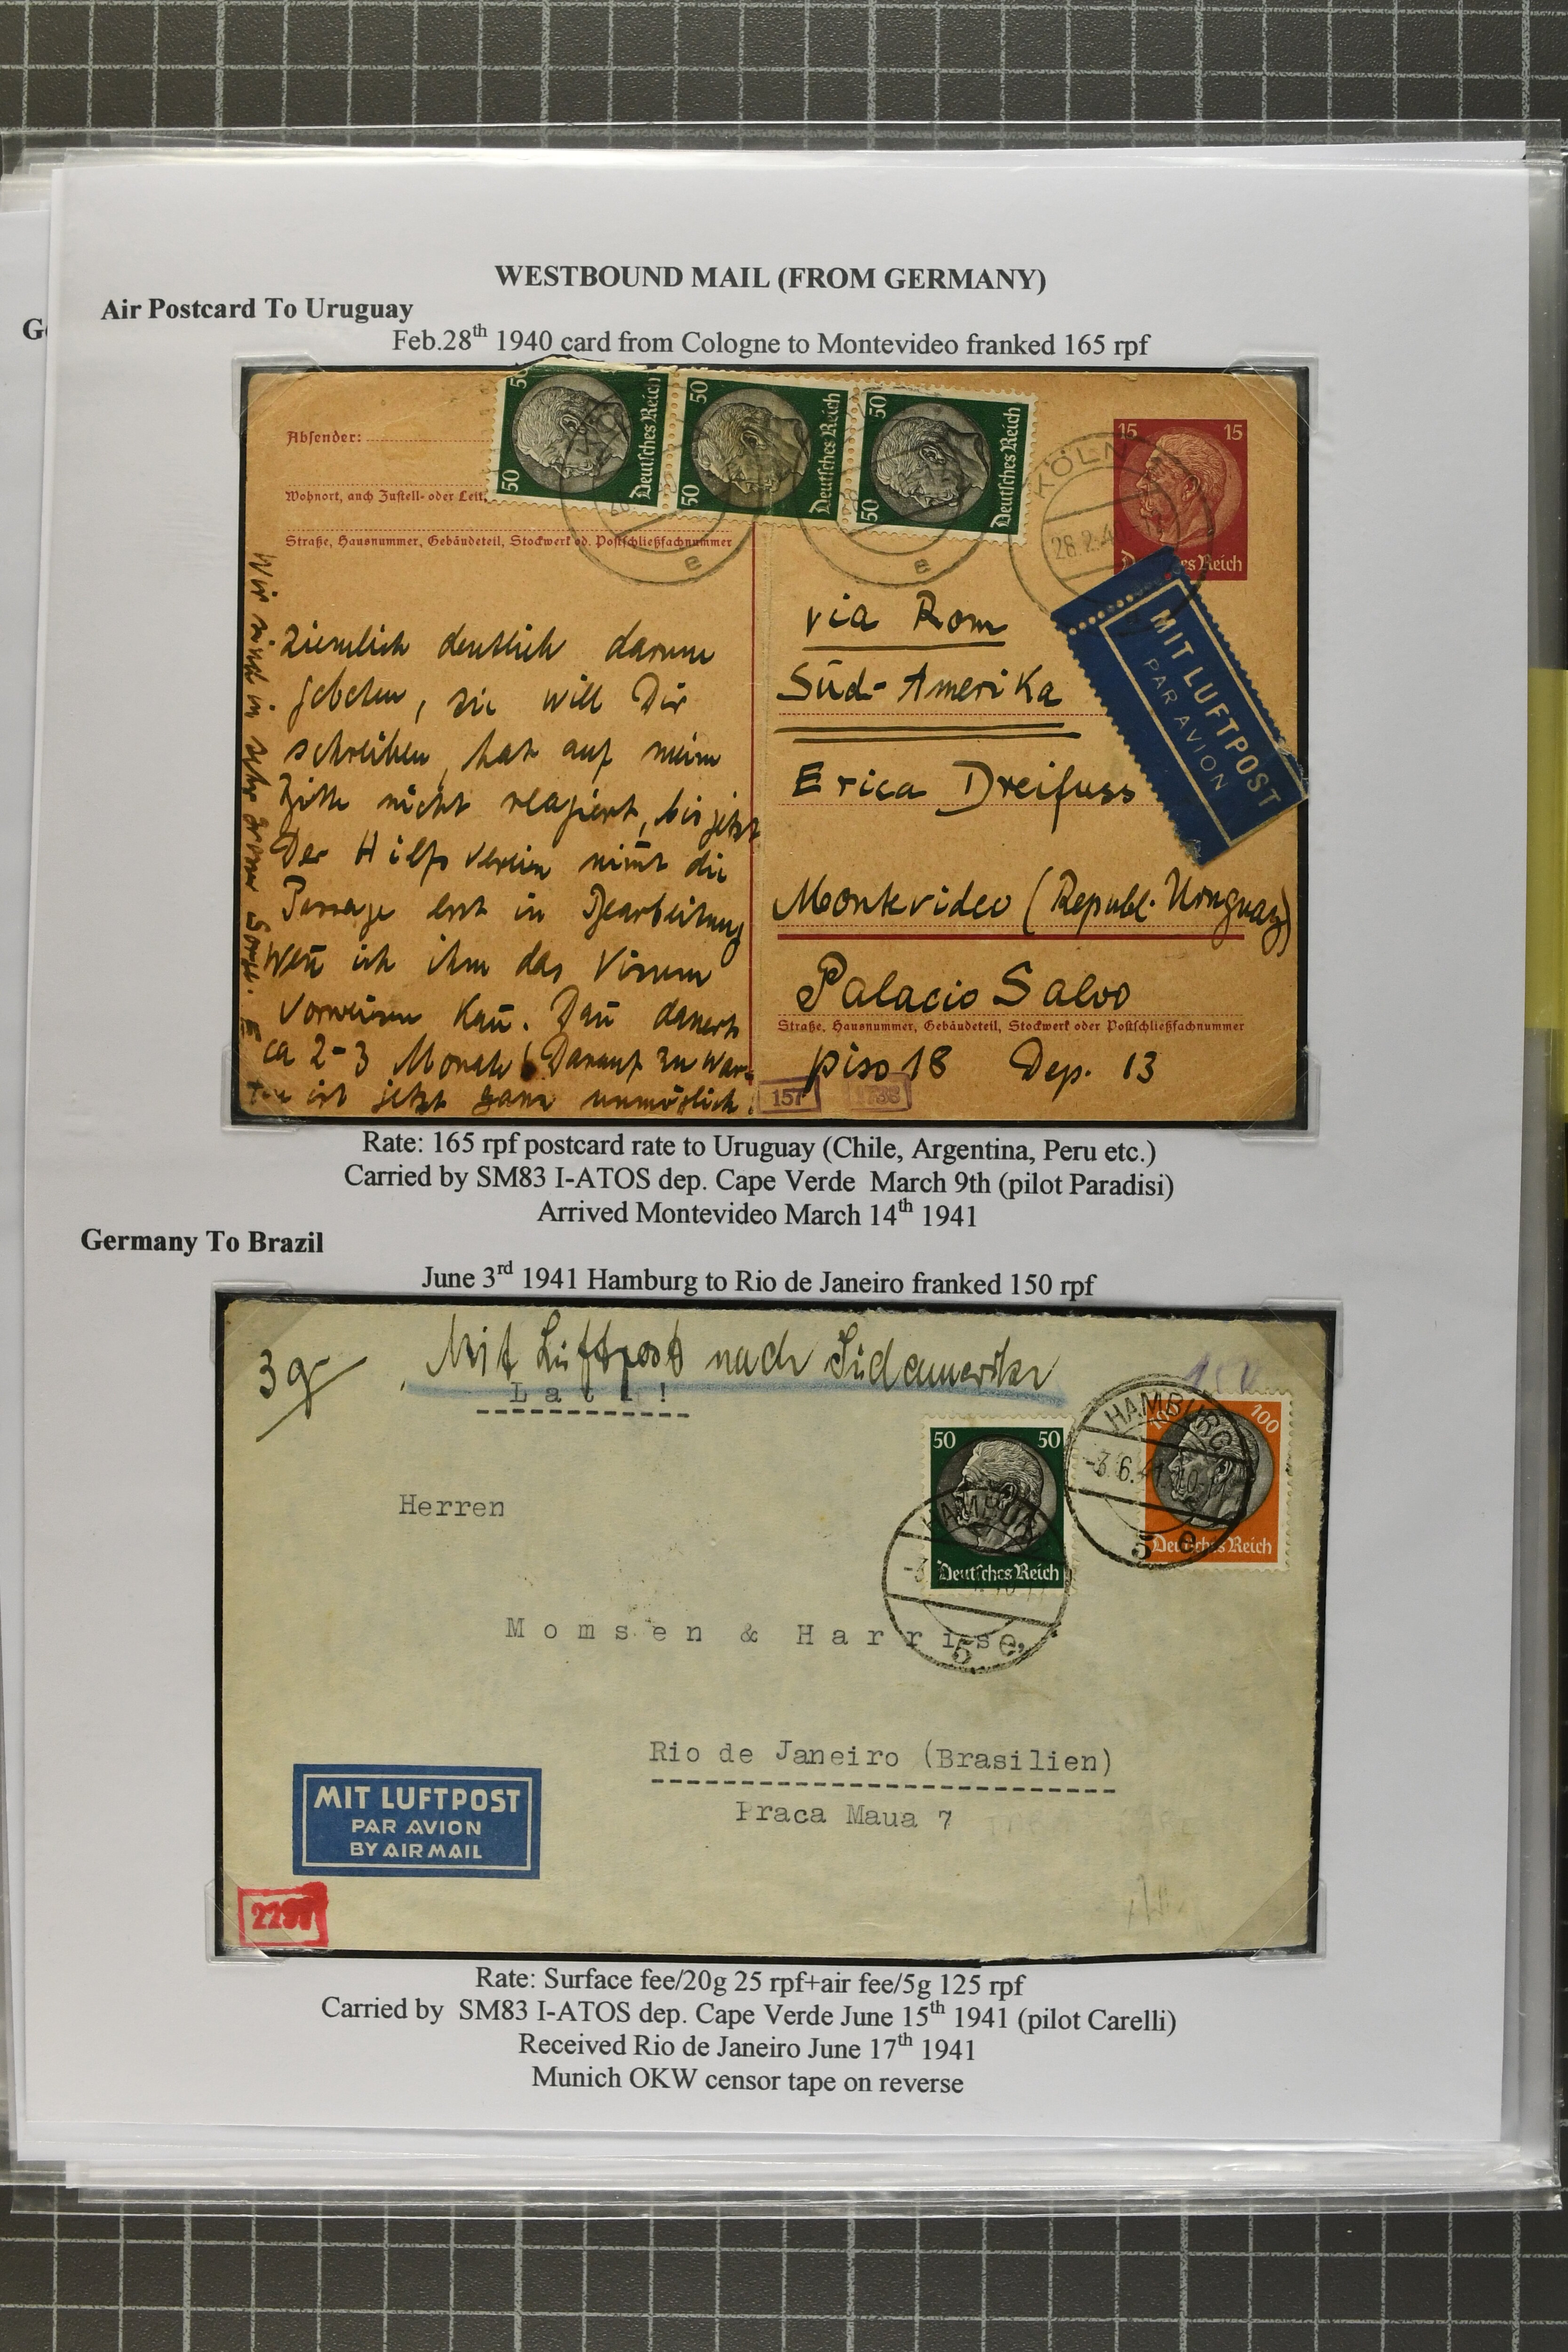 WESTBOUND MAIL (FROM GERMANY)
Air Postcard To Uruguay
Ge
Feb.28th 1940 card from Cologne to Montevideo franked 165 rpf
Absender:
Wohnort, auch Zustell- oder Leit
Straße, Hausnummer, Gebäudeteil, Stockwerk od. Postschließfachnummer
50 50 Deutsches Reich
50 50 Deutsches Reich
50 50 Deutsches Reich
15 15
Deutsches Reich
KÖLN
28.2.40
e
e
MIT LUFTPOST
PAR AVION
Wir sind in sehr grosser Sorge. E
ziemlich deutlich darum
gebeten, sie will Dir
schreiben, hat auf meine
Bitte nicht reagiert, bis jetzt
Der Hilfsverein nimt die
Passage erst in Bearbeitung
Wen ich ihm das Visum
vorweisen kan. Dan dauert
ca 2-3 Monate! Darauf zu war-
ten ist jetzt ganz unmöglich.
via Rom
Süd-Amerika
Erica Dreifuss
Montevideo (Republ. Uruguay)
Palacio Salvo
Straße, Hausnummer, Gebäudeteil, Stockwerk oder Postschließfachnummer
piso 18 Dep. 13
157 1738
Rate: 165 rpf postcard rate to Uruguay (Chile, Argentina, Peru etc.)
Carried by SM83 I-ATOS dep. Cape Verde March 9th (pilot Paradisi)
Arrived Montevideo March 14th 1941
Germany To Brazil
June 3rd 1941 Hamburg to Rio de Janeiro franked 150 rpf
3g
Mit Luftpost nach Südamerika
Lati!
HAMBURG
-3.6.41.10-11
5 e
50 50
Deutsches Reich
100 100
Deutsches Reich
HAMBURG
5 e
Herren
Momsen & Harris,
Rio de Janeiro (Brasilien)
Praca Maua 7
MIT LUFTPOST
PAR AVION
BY AIR MAIL
2297
Rate: Surface fee/20g 25 rpf+air fee/5g 125 rpf
Carried by SM83 I-ATOS dep. Cape Verde June 15th 1941 (pilot Carelli)
Received Rio de Janeiro June 17th 1941
Munich OKW censor tape on reverse